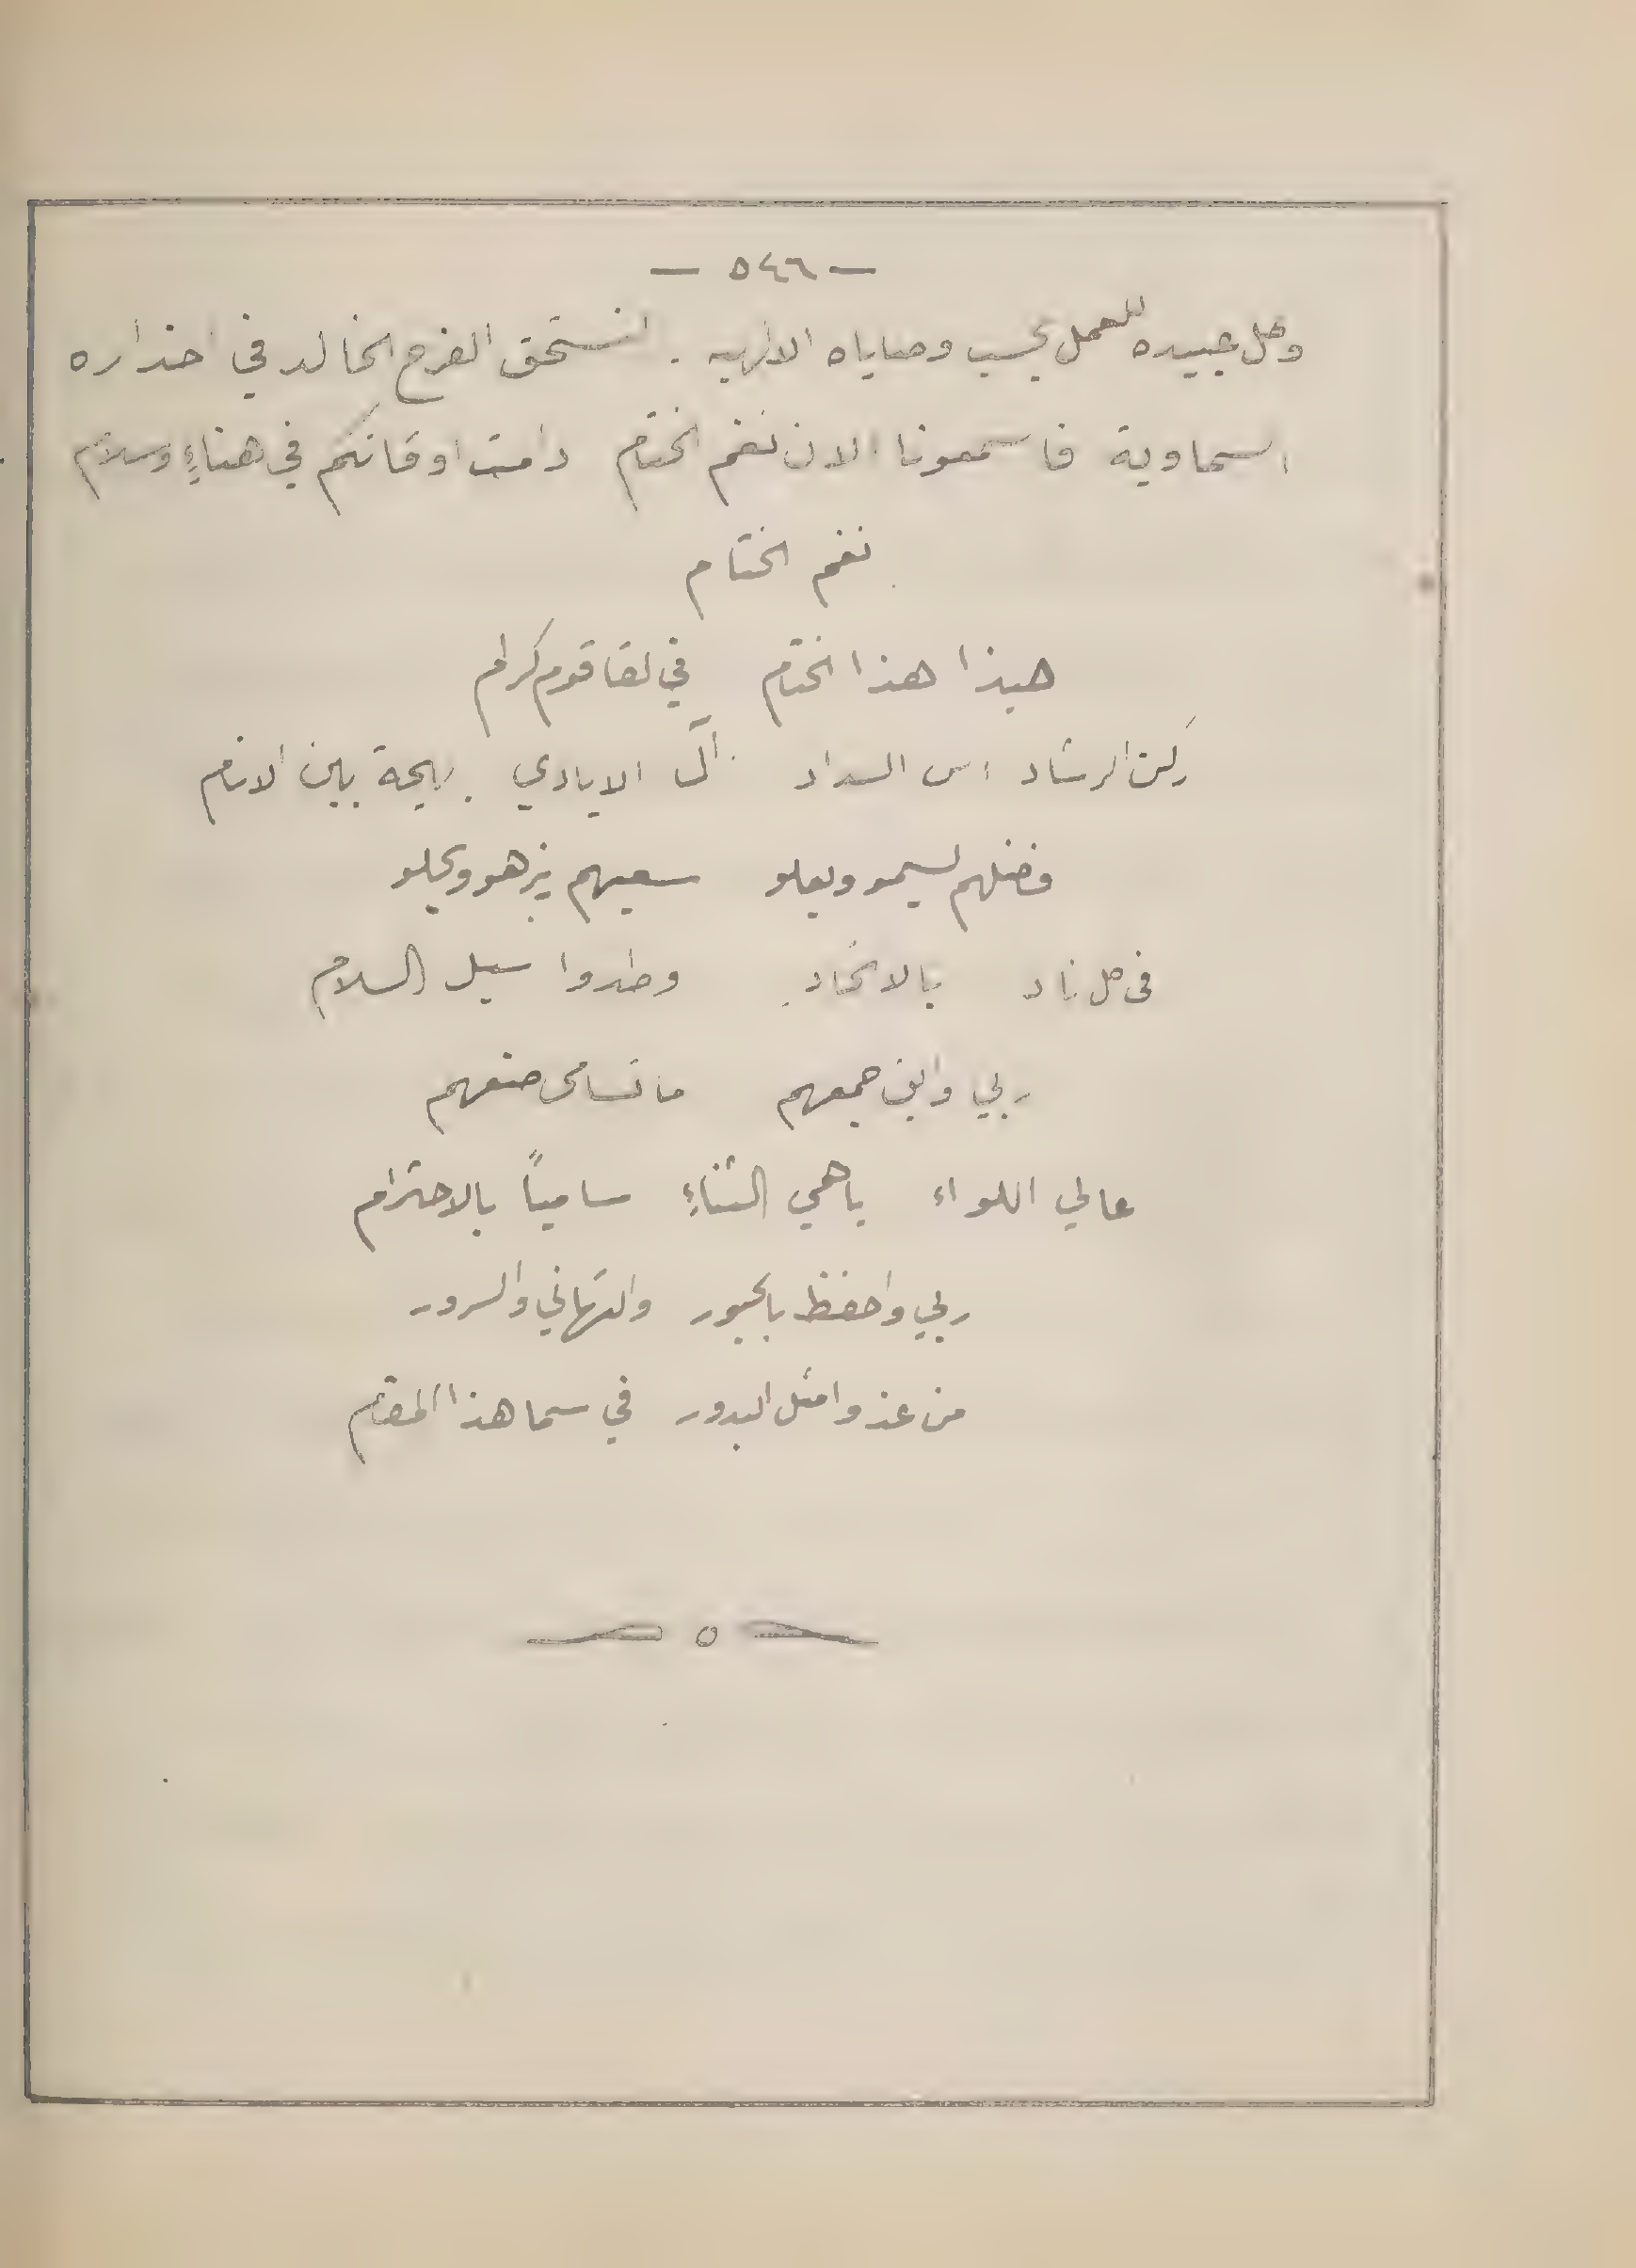 — ٥٤٦ —
وكل عبيده للعمل بحسب وصاياه الالهيه . لنستحق الفرح الخالد في اخداره
السماوية فاسمعونا الان نغم الختام دامت اوقاتكم في هناءٍ وسلام
نغم الختام
حبذا هذا الختام في لقا قوم كرام
ركن الرشاد اس السداد آل الايادي بهجة بين الانام
فضلهم يسمو ويعلو سعيهم يزهو ويحلو
في كل ناد بالاتحادِ وطدوا سبل السلام
ربي وابق جمعهم ما تسامى صنعهم
عالي اللواء باهي الثناءِ سامياً بالاحترام
ربي واحفظ بالحبور والتهاني والسرور
من غدوا مثل البدور في سما هذا المقام